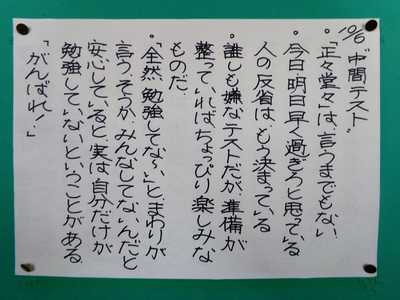 10/6 "中間テスト"
•「正々堂々」は、言うまでもない
•今日、明日早く過ぎろと思っている
人の反省は、もう決まっている
•誰しも嫌なテストだが、準備が
整っていればちょっぴり楽しみな
ものだ。
•「全然、勉強してな〜い」と、まわりが
言う。そうか、みんなしてないんだと
安心していると、実は自分だけが
勉強していないということがある
「がんばれ!」